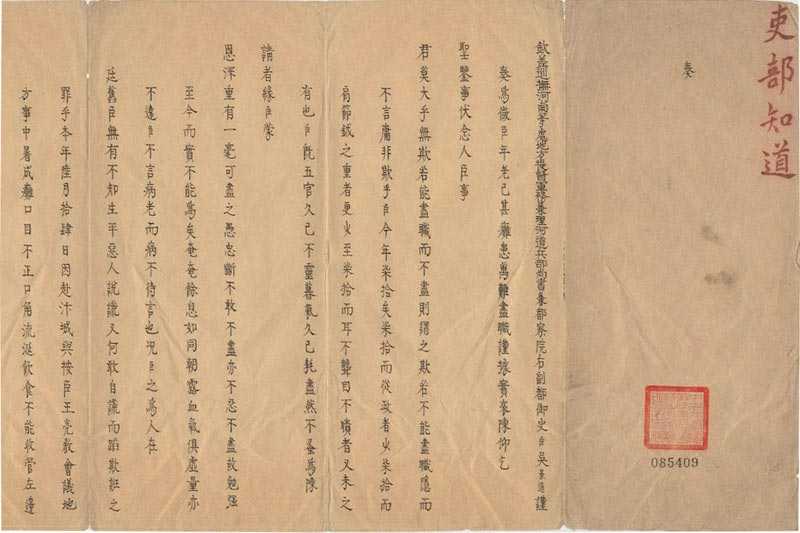 吏部知道
奏
085409
欽差巡撫河南等處地方提督軍務兼理河道兵部尚書兼都察院右副都御史臣吳景道謹
奏為微臣年老已甚癱患萬難盡職謹據實哀陳仰乞
聖鑒事伏念人臣事
君莫大乎無欺若能盡職而不盡則謂之欺若不能盡職隱而
不言庸非欺乎臣今年柒拾矣柒拾而從政者少柒拾而
肩節鉞之重者更少至柒拾而耳不聾目不瞶者又未之
有也臣旣五官久已不靈暮氣久已耗盡然不蚤為陳
請者緣臣蒙
恩深重有一毫可盡之愚忠斷不敢不盡亦不忍不盡故勉強
至今而實不能為矣奄奄餘息如同朝露血氣俱虛量亦
不遠臣不言病老而病不待言也況臣之為人在
廷舊臣無有不知生平惡人說謊又何敢自謊而蹈欺誑之
罪乎本年陸月拾肆日因赴汴城與按臣王亮教會議地
方事中暑成癱口目不正口角流涎飲食不能收管左邊